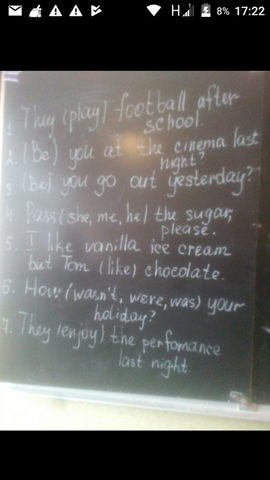 8% 17:22
1. They (play) football after
school.
2. (Be) you at the cinema last
night?
3. (be) you go out yesterday?
4. Pass (she, me, he) the sugar,
please.
5. I like vanilla ice cream
but Tom (like) chocolate.
6. How (wasn't, were, was) your
holiday?
7. They (enjoy) the perfomance
last night.